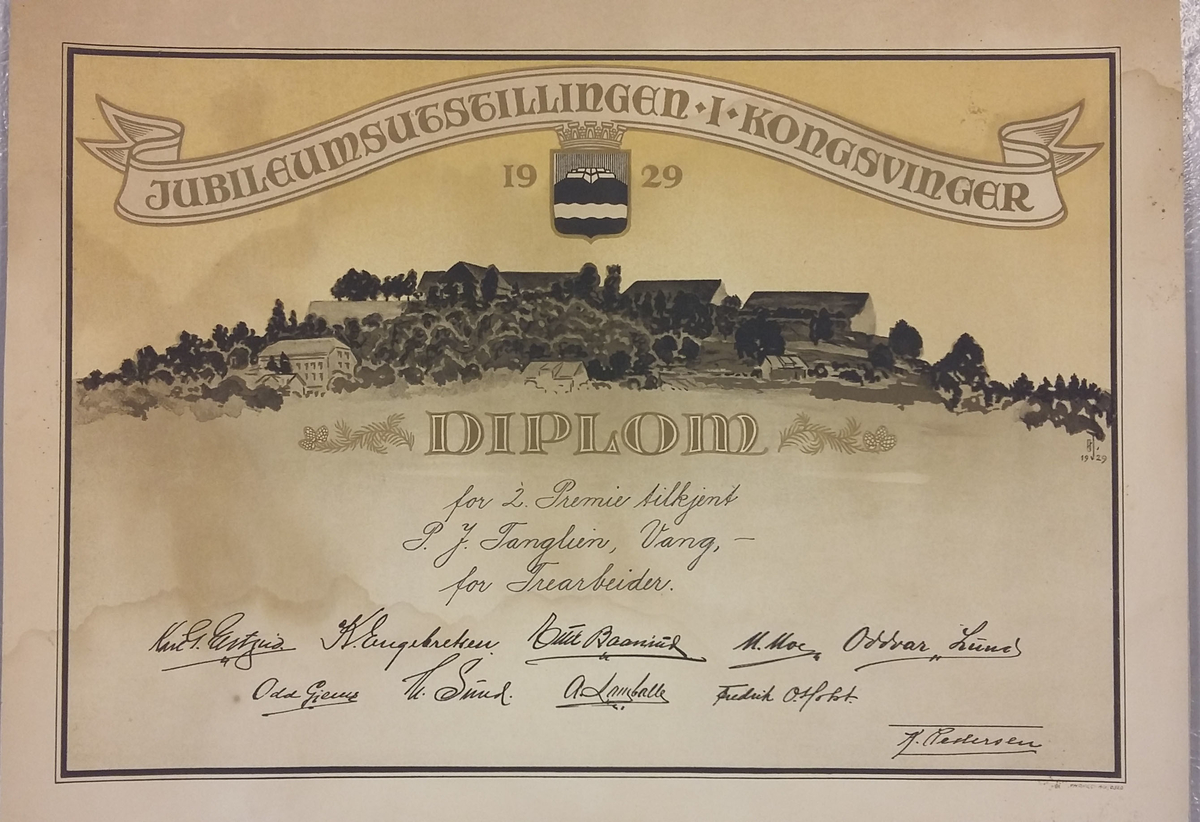 JUBILEUMSUTSTILLINGEN · I · KONGSVINGER
19 29
DIPLOM
1929
for 2. Premie tilkjent
P. J. Tanglien, Vang, —
for Trearbeider.
K. Engebretsen M. Moe Oddvar Lund
Odd M. Sund. A. Lamballe Fredrik O. Holst.
K. Pedersen